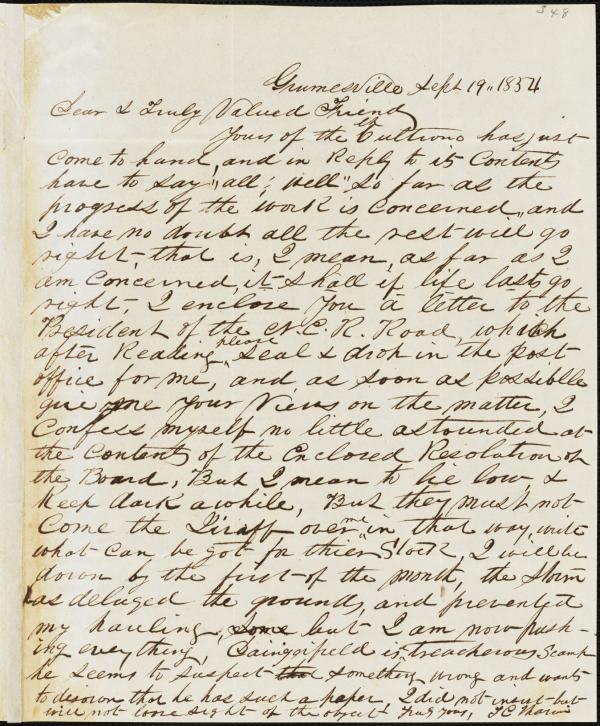 348
Grumesville Sept 19, 1854
Dear & Truly Valued Friend
Yours of the Cultimo has just
Come to hand, and in Reply to its Contents
have to say, "all; well" So far as the
progress of the work is Concerned, and
I have no doubt all the rest will go
right, that is, I mean, as far as I
am Concerned, it Shall if life lasts go
right, I enclose You a letter to the
President of the N. C. R. Road, which
after Reading, please Seal & drop in the post
office for me, and as soon as possiblle
give me Your Views on the matter, I
Confess myself no little astounded at
the Contents of the Enclosed Resolution of
the Board, But I mean to lie low &
Keep dark awhile, But they must not
Come the over me in that way,
what Can be got for thier Stock, I will be
down by the first of the month, the Storm
as deluged the ground, and prevented
my hauling, some but I am now push-
ing everything, is treacherous Scamp
he Seems to Suspect that something wrong and wants
to disown that he has such a paper I did not insist but
will not loose sight of the object Truly Yours,